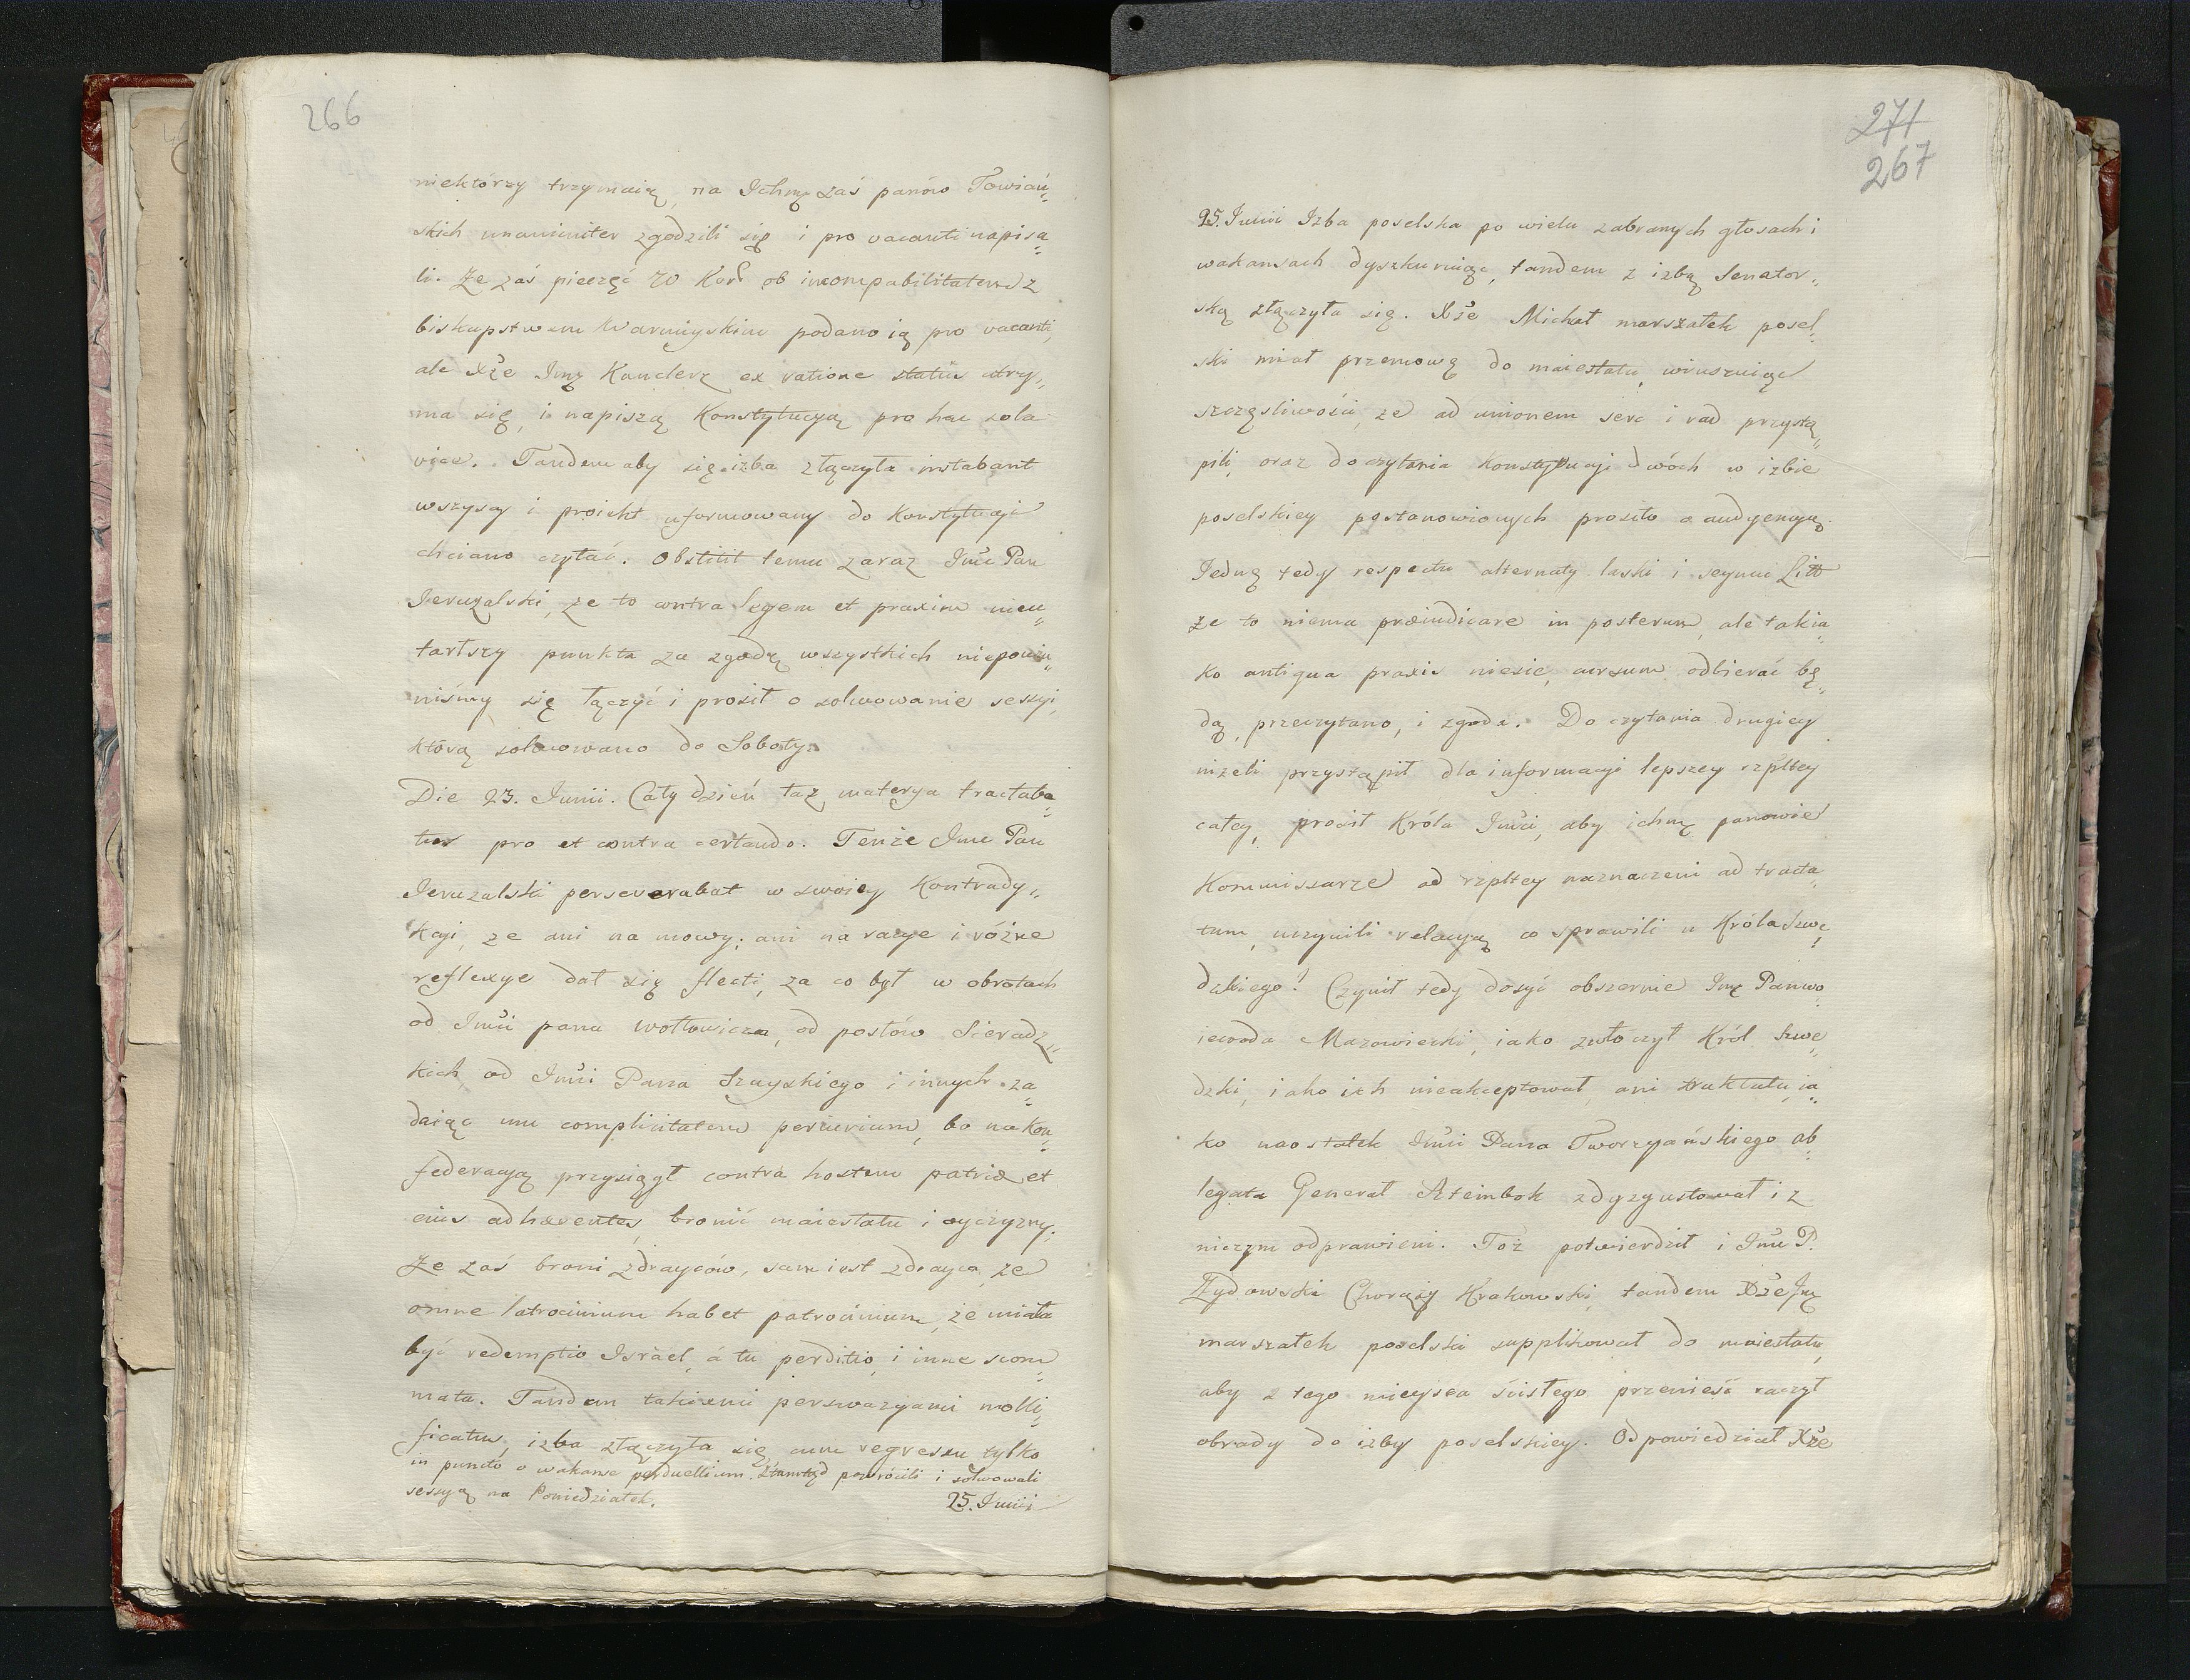 266
niektórzy trzymaią, na Ichmę zaś panów Towiań„
skich unanimiter zgodzili się i pro vacanti napisa„
li. Ze zaś pieczęć W Kor. ob incompabilitatem z
biskupstwem Warmiyskim podano ią pro vacanti,
ale Xże Jmę Kanclerz ex ratione status utrzy„
ma się, i napiszą Konstytucyą pro hac sola
vice. Tandem aby się izba złączyła instabant
wszyscy i proiekt uformowany do Konstytucyi
chciano czytać. Obstitit temu zaraz Imć Pan
Ieruzalski, ze to contra legem et praxim nieu„
tartszy punkta za zgodą wszystkich niepowin„
niśmy się łączyć i prosił o solwowanie sessyi,
którą solwowano do Soboty.
Die 23. Junii. Cały dzień taż materya tractaba„
tur pro et contra certando. Tenże Imc Pan
Ieruzalski perseverabat w swoiey Kontrady„
kcyi, ze ani na mowy, ani na racye i różne
reflexye dał się flecti, za co był w obrotach
od Imci pana Wołłowicza, od posłów Sieradz„
kich, od Imci Pana Szayskiego i innych za„
daiąc mu complicitatem periurium, bo na kon„
federacyą przysiągł contra hostem patriæ et
eius adhærentes, bronić maiestatu i oyczyzny.
Ze zaś broni zdraycow, sam iest zdrayca, ze
omne latrocinium habet patrocinium, że miała
być redemptio Israel, á tu perditio, i inne scom„
mata. Tandem takiemi perswazyami molli„
ficatus, izba złączyła się cum regressu tylko
in puncto o wakanse perduellium. Ztamtąd powrócili i solwowali
sessyą na Poniedziałek.
25. Junii
271
267
25. Junii Izba poselska po wielu zabranych głosach i
wakansach dyszkuruiąc, tandem z izbą Senator„
ską złączyła się. Xże Michał marszałek posel„
ski miał przemowę do maiestatu, winszuiąc
szczęsliwości, ze ad unionem serc i rad przystą„
pili, oraz do czytania Konstytucyi dwóch w izbie
poselskiey postanowionych prosiło o audyencyą.
Iednę tedy respectu alternaty laski i seymu Litt
ze to niema præiudicare in posterum, ale takia„
ko antiqua praxis niesie, cursum odbierać bę„
dą, przeczytano, i zgoda. Do czytania drugiey
niżeli przystąpił dla informacyi lepszey rzpltey
całey, prosił Króla Imci, aby ichmę panowie
Kommissarze od rzpltey naznaczeni ad tracta„
tum, uczynili relacyą co sprawili u Króla Szwe„
dzkiego? Czynił tedy dosyć obszernie Imę Pan wo„
iewoda Mazowiecki, iako zwłoczył Król Szwe„
dzki, iako ich nieakceptował, ani traktatu, ia„
ko naostatek Imci Pana Tworzyańskiego ab„
legata Generał Szteinbok zdyzgustował i z
niczym odprawieni. Toż potwierdził i Imc P.
Zydowski Chorąży Krakowski, tandem Xże Jmę
marszałek poselski supplikował do maiestatu,
aby z tego mieysca ścisłego przenieść raczył
obrady do izby poselskiey. Odpowiedział Xże